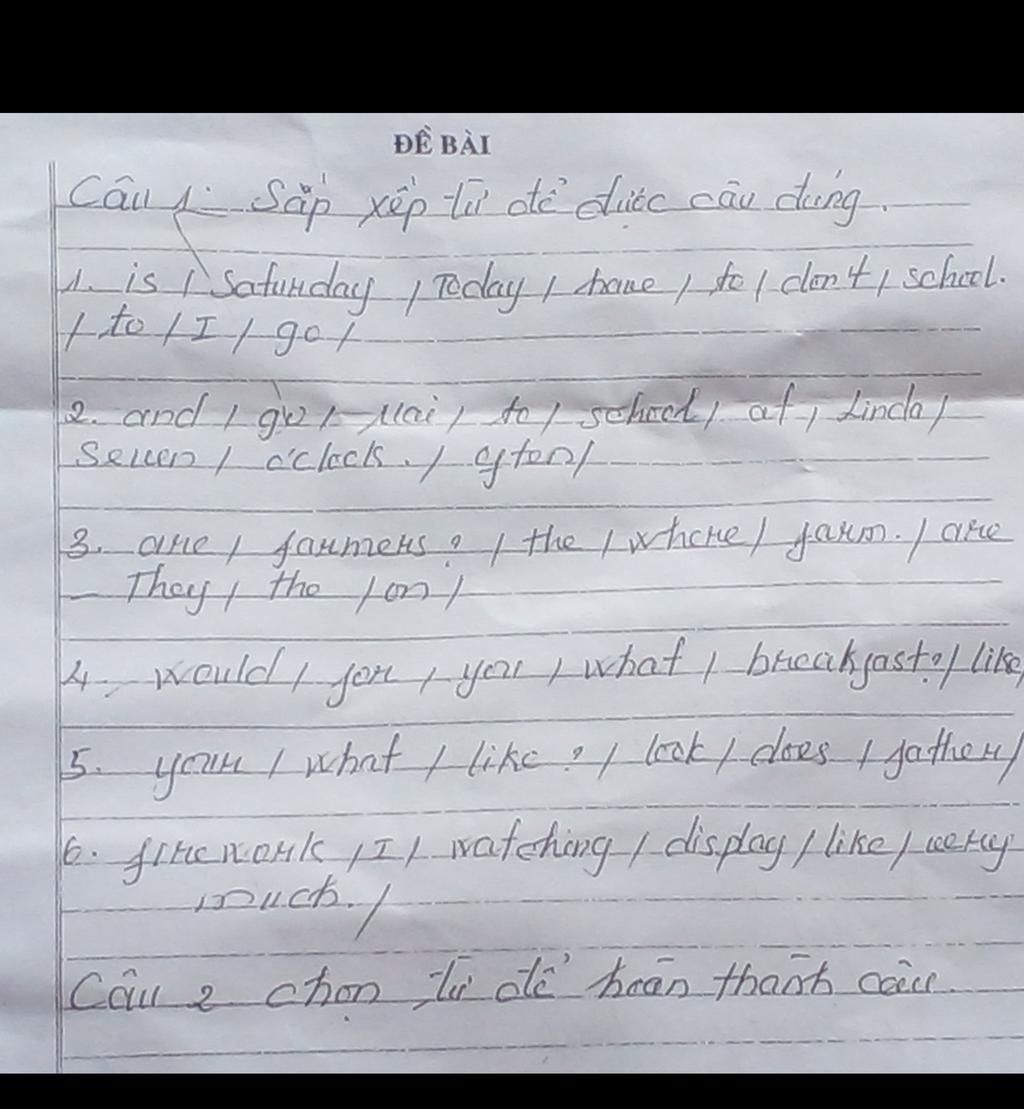 ĐỀ BÀI
Câu 1: Sắp xếp từ để được câu đúng.
1. is / Saturday / Today / have / to / don't / school.
/ to / I / go /
2. and / go / Mai / to / school / at / Linda /
Seven / o'clock. / often /
3. are / farmers? / the / where / farm. / are
They / the / on /
4. would / for / you / what / breakfast? / like /
5. your / what / like? / look / does / father /
6. firework / I / watching / display / like / very
much. /
Câu 2 chọn từ để hoàn thành câu.